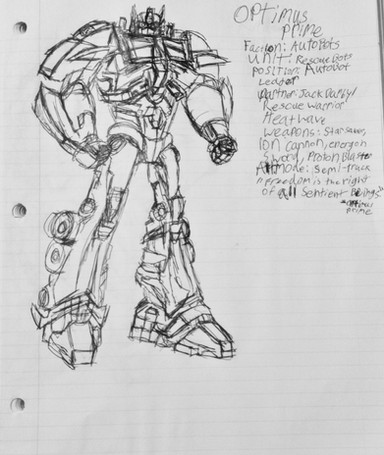 OPTIMUS
PRIME
Faction: AutoBots
Unit: Rescue Bots
Position: Autobot
Leader
Partner Jack Darby/
Rescue Warrior
Heatwave
Weapons: Star saber,
Ion Cannon, energon
Sword, Proton Blaster
Alt mode: Semi-truck
"Freedom is the right
of all Sentient Beings"
Optimus
Prime